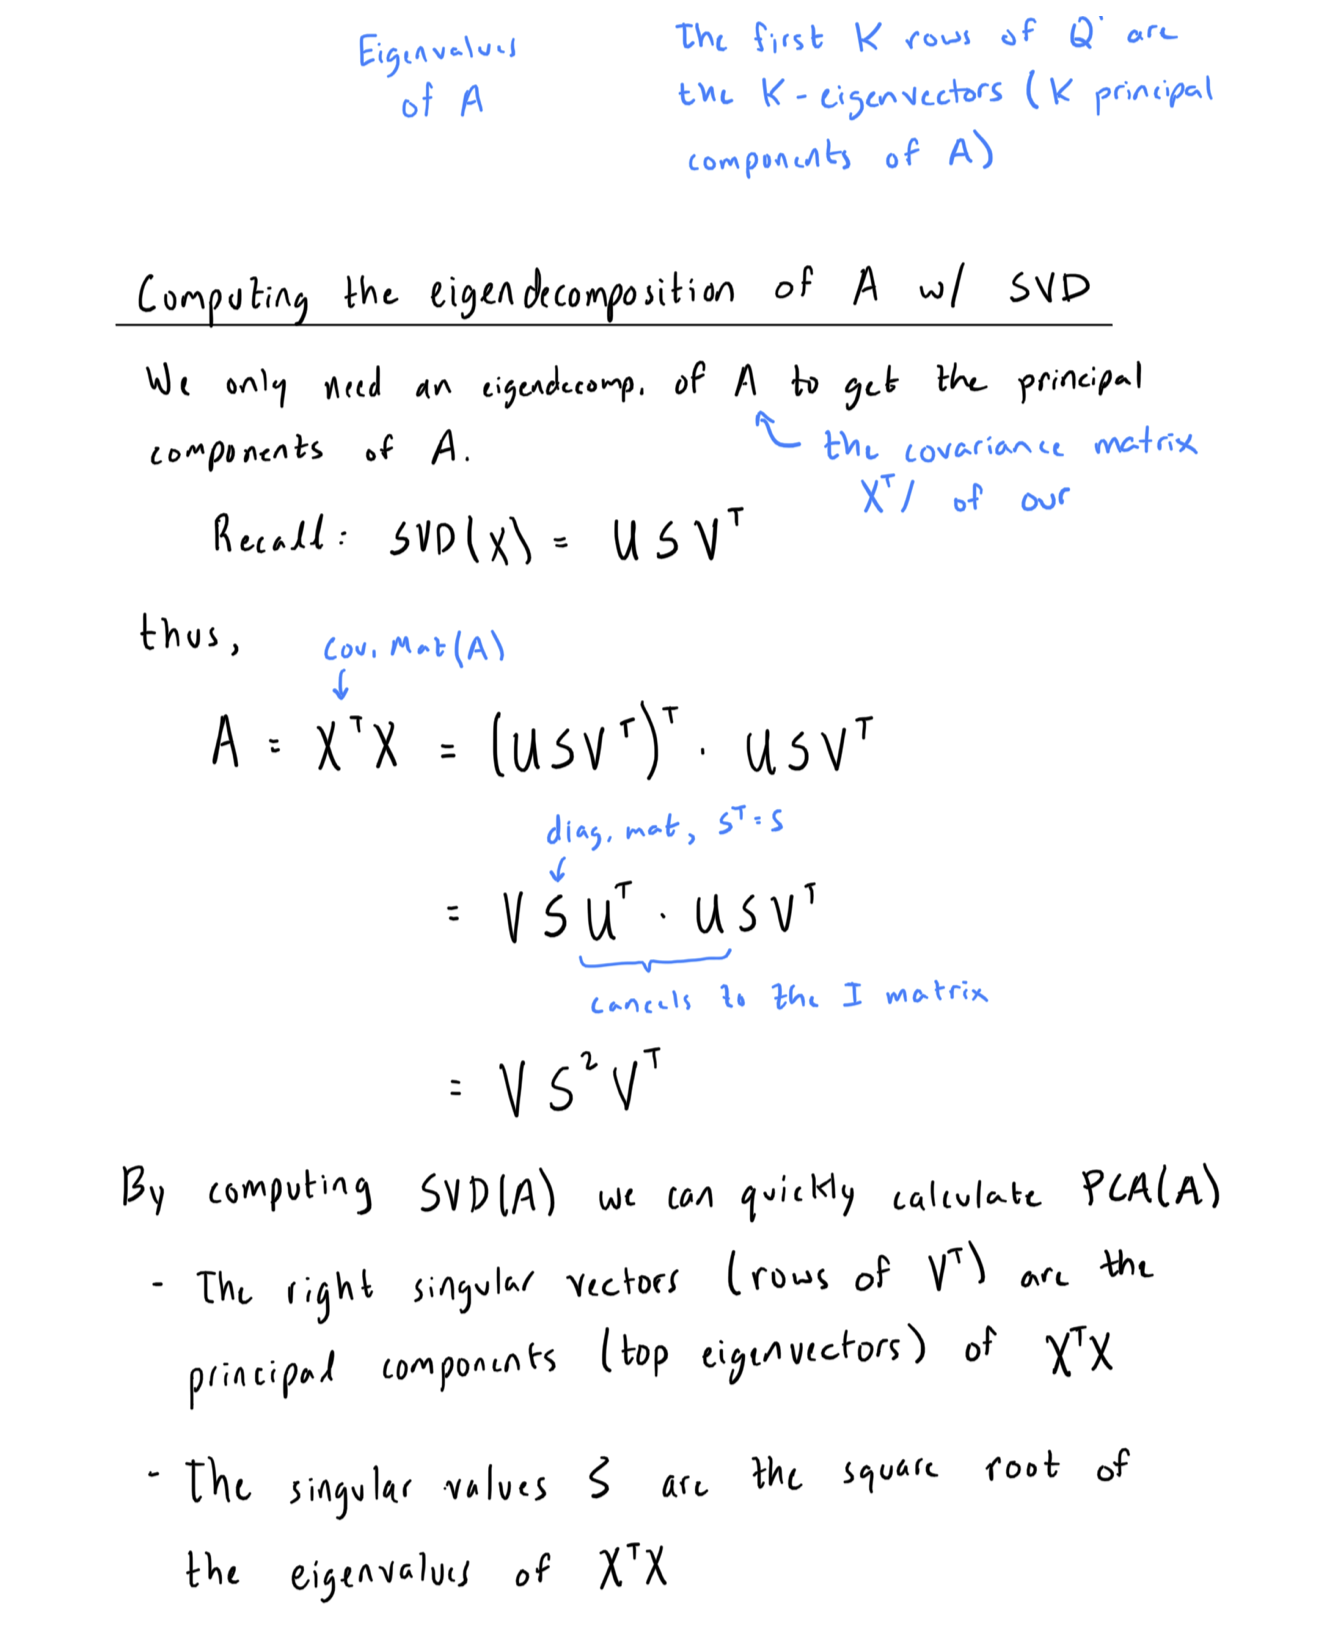 Eigenvalues
of A
The first K rows of Q are
the K-eigenvectors (K principal
components of A)
Computing the eigendecomposition of A w/ SVD
We only need an eigendecomp. of A to get the principal
components of A.
the covariance matrix
Xᵀ/ of our
Recall: SVD(X) = USVᵀ
thus,
Cov. Mat(A)
A = XᵀX = (USVᵀ)ᵀ · USVᵀ
diag. mat, Sᵀ=S
= VSUᵀ · USVᵀ
cancels to the I matrix
= VS²Vᵀ
By computing SVD(A) we can quickly calculate PCA(A)
- The right singular vectors (rows of Vᵀ) are the
principal components (top eigenvectors) of XᵀX
- The singular values S are the square root of
the eigenvalues of XᵀX